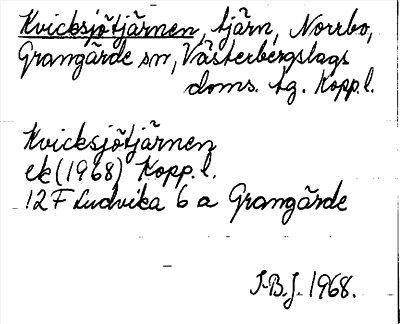 Kvicksjötjärnen, tjärn, Norrbo,
Grangärde sn, Västerbergslags
doms. tg. Kopp.l.
Kvicksjötjärnen
ek (1968) Kopp.l.
12 F Ludvika 6 a Grangärde
I.B.J. 1968.